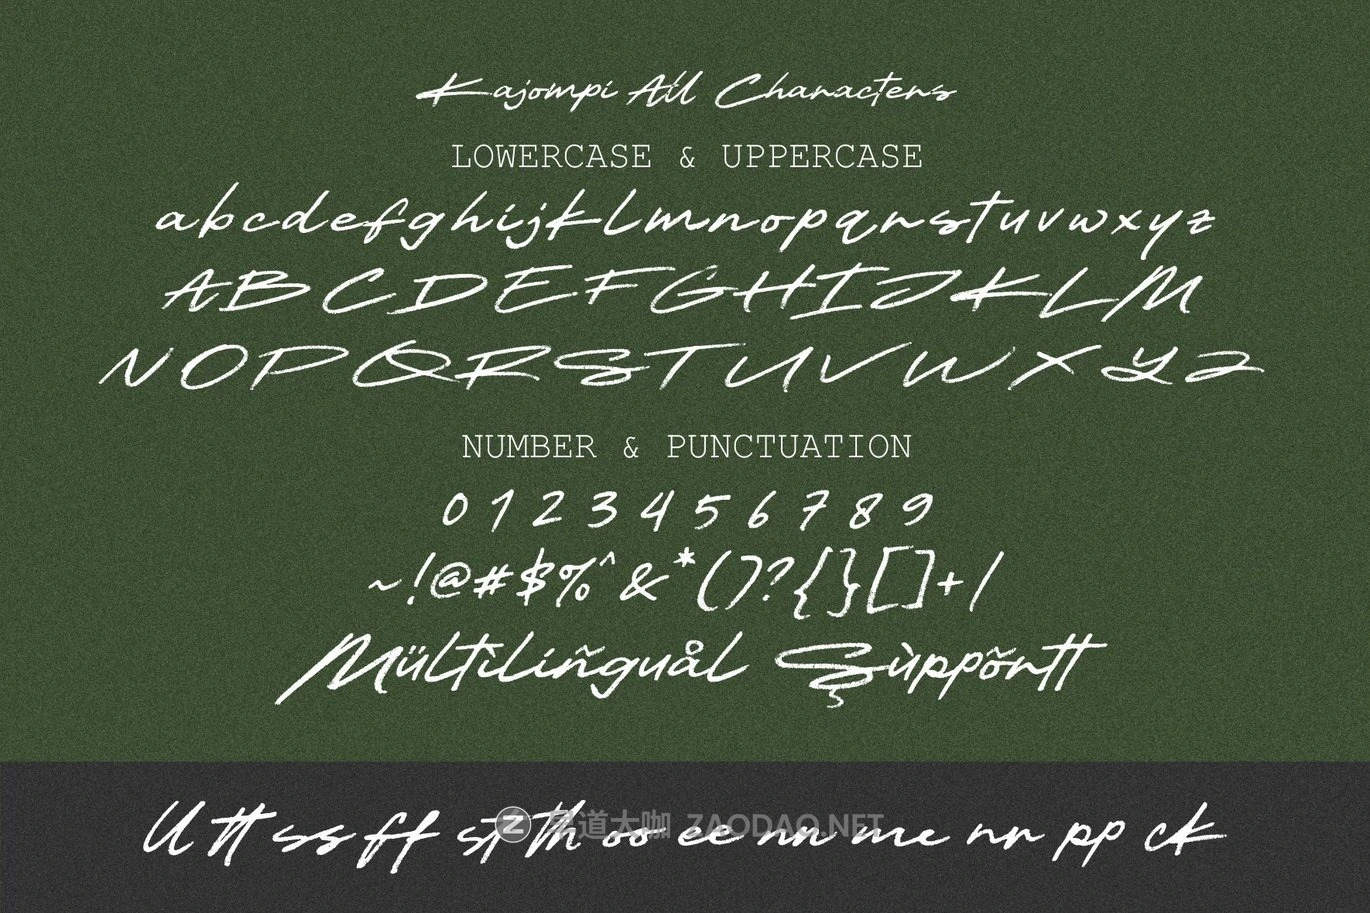 Kajompi All Characters
LOWERCASE & UPPERCASE
abcdefghijklmnopqrstuvwxyz
ABCDEFGHIJKLM
NOPQRSTUVWXYZ
NUMBER & PUNCTUATION
0 1 2 3 4 5 6 7 8 9
~!@#$%^&*()?{}[]+/
Mültìlíñguål Şùppõrtt
ll tt ss ff st th oo ee nn me rr pp ck
道大咖 ZAODAO.NET